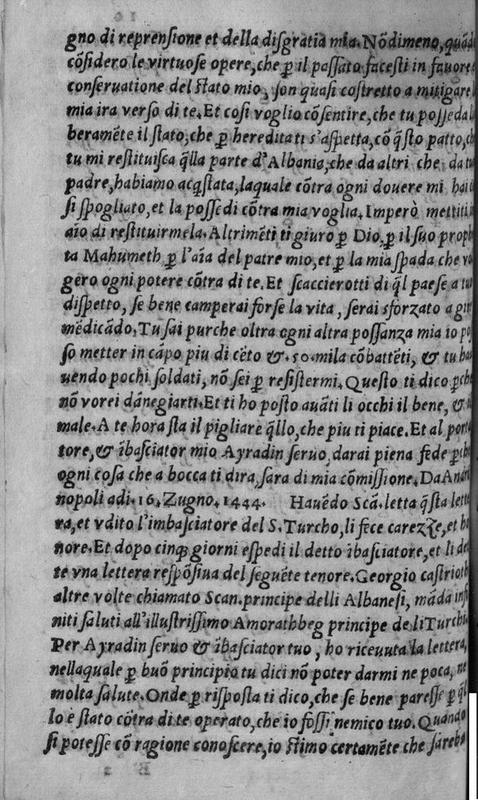 gno di reprensione et della disgratia mia. Nõdimeno, quãdo
cõsidero le virtuose opere, che ꝑ il passato facesti in fauore
conseruatione del stato mio, son quasi costretto a mitigare
mia ira verso di te. Et cosi voglio cõsentire, che tu posseda
beramẽte il stato, che ꝑ hereditati s'aspetta, cõ q̃sto patto, ch
tu mi restituisca q̃lla parte d'Albania, che da altri che da tu
padre, habiamo acq̃stata, laquale cõtra ogni douere mi hai
si spogliato, et la possedi cõtra mia voglia. Imperò mettiti
aĩo di restituirmela. Altrimẽti ti giuro ꝑ Dio, ꝑ il suo proph
ta Mahumeth ꝑ l'aĩa del patre mio, et ꝑ la mia spada che vo
gero ogni potere cõtra di te. Et scaccierotti di q̃l paese a tuo
dispetto, se bene camperai forse la vita, serai sforzato a gir
mẽdicãdo. Tu sai purche oltra ogni altra possanza mia io pos
so metter in cãpo piu di cẽto & .50. mila cõbattẽti, & tu ha
uendo pochi soldati, nõ sei ꝑ resistermi. Questo ti dico ꝑche
nõ vorei dãnegiarti. Et ti ho posto auãti li occhi il bene, &
male. A te hora sta il pigliare q̃llo, che piu ti piace. Et al porta
tore, & ĩbasciator mio Ayradin seruo, darai piena fede ꝑche
ogni cosa che a bocca ti dira, sara di mia cõmissione. Da Andri
nopoli adi .16. Zugno. 1444. Hauẽdo Scã. letta q̃sta lette
ra, et vdito l'imbasciatore del S. Turcho, li fece carezze, et ho
nore. Et dopo cinq; giorni espedi il detto ĩbasciatore, et li det
te vna lettera respõsiua del seguẽte tenore. Georgio castrioth
altre volte chiamato Scan. principe delli Albanesi, mãda infi
niti saluti all'illustrissimo Amorathbeg principe de li Turchi.
Per Ayradin seruo & ĩbasciator tuo, ho riceuuta la lettera,
nellaquale ꝑ buõ principio tu dici nõ poter darmi ne poca, ne
molta salute. Onde ꝑ risposta ti dico, che se bene paresse ꝑ q̃l
lo è stato cõtra di te operato, che io fossi nemico tuo. Quando
si potesse cõ ragione conoscere, io stimo certamẽte che sarebe
E 2